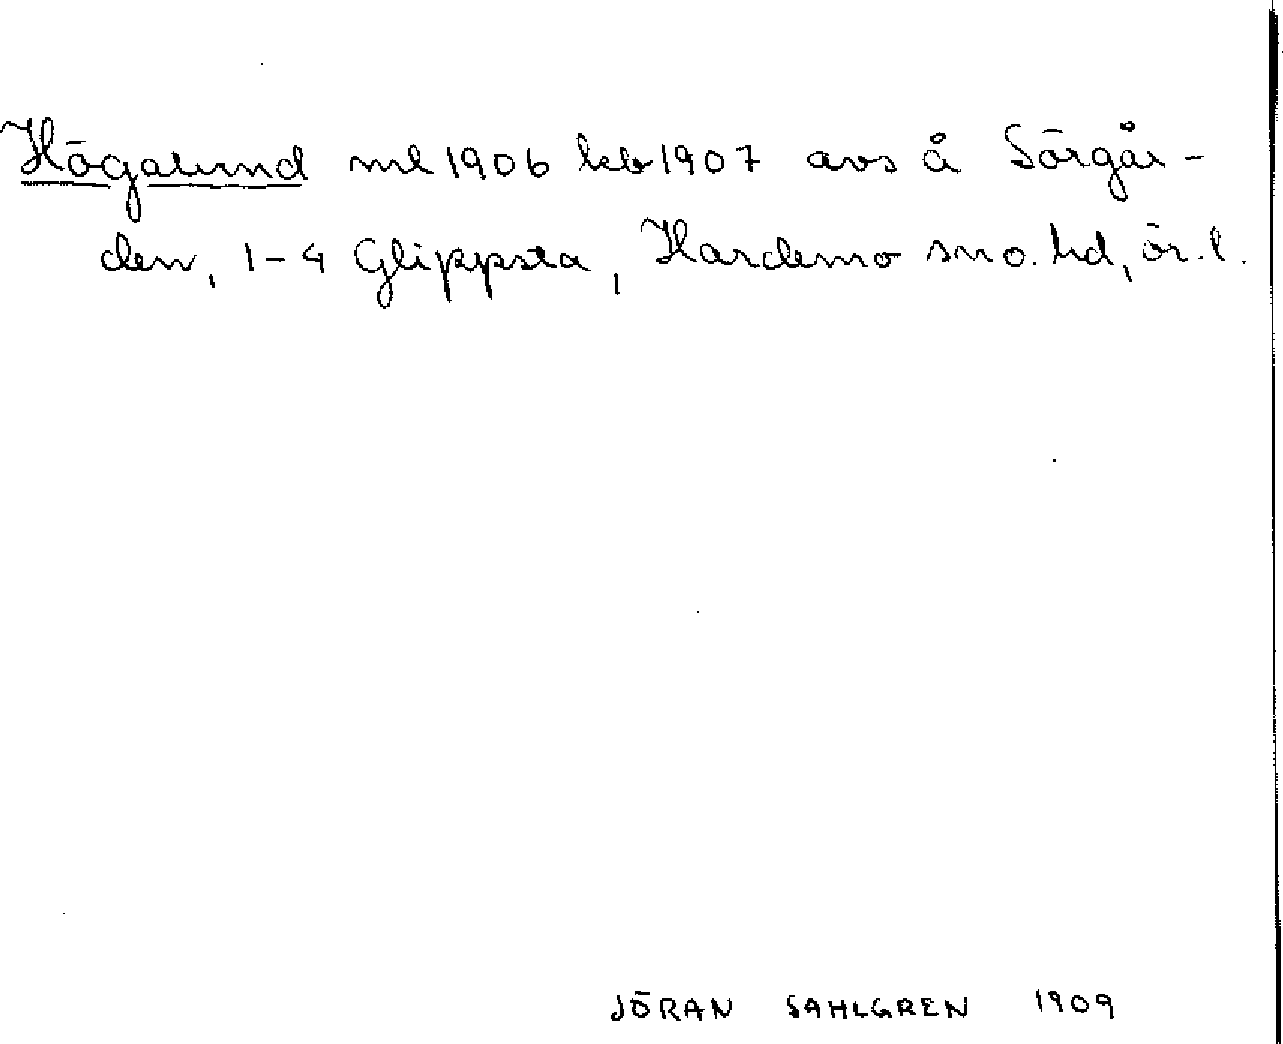 Högalund ml 1906 lb 1907 avs å Sörgår-
den, 1-4 Glippsta, Hardemo sn o. hd, ör. l.
JÖRAN SAHLGREN 1909